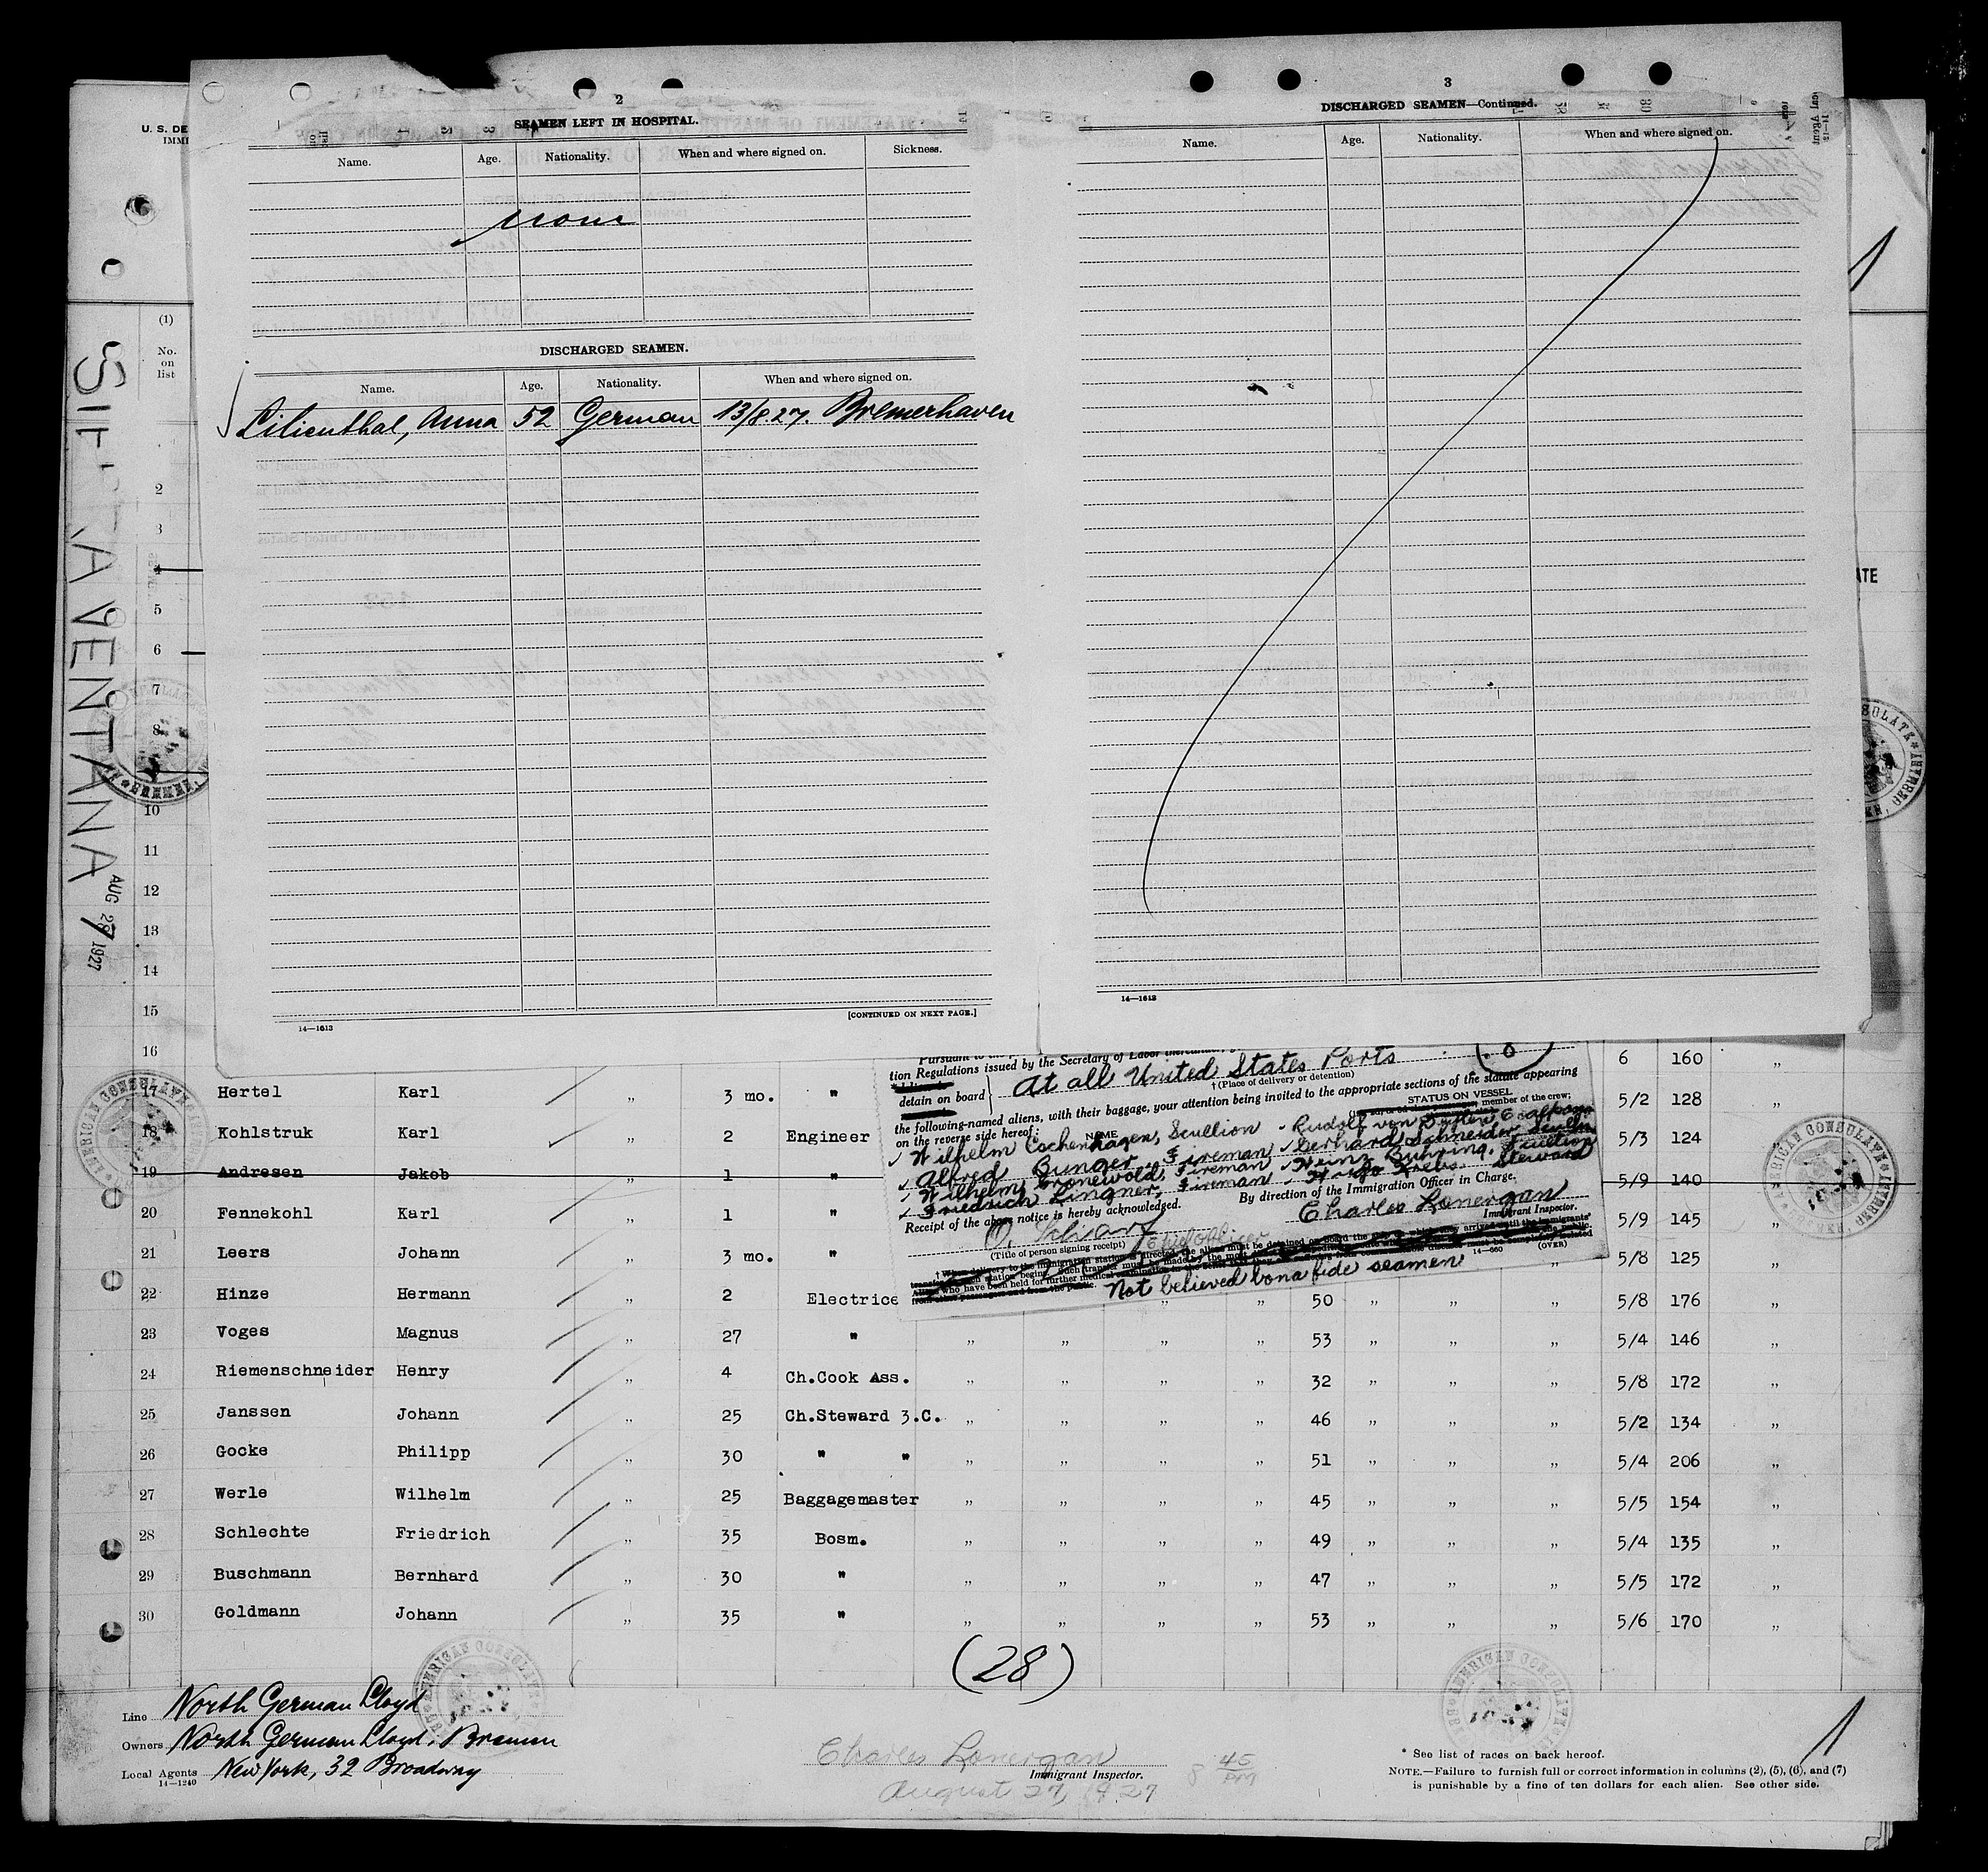 2
SEAMEN LEFT IN HOSPITAL.
Name. Age. Nationality. When and where signed on. Sickness.
none
DISCHARGED SEAMEN.
Name. Age. Nationality. When and where signed on.
Lilienthal, Anna 52 German 13/8.27. Bremerhaven
14—1613
[CONTINUED ON NEXT PAGE.]
3
DISCHARGED SEAMEN—Continued.
Name. Age. Nationality. When and where signed on.
14—1613
U. S. DE
IMMI
(1)
No. on list
VENTANA
AUG 1927
2
3
4
5
6
7
8
10
11
12
13
14
15
16 6 160 „
17 Hertel Karl „ 3 mo. " 5/2 128 „
18 Kohlstruk Karl „ 2 Engineer 5/3 124 „
19 Andresen Jakob „ 1 " 5/9 140
20 Fennekohl Karl „ 1 " 5/9 145 „
21 Leers Johann „ 3 mo. " „ 5/8 125 „
22 Hinze Hermann „ 2 Electrice „ „ 50 „ „ „ 5/8 176 „
23 Voges Magnus „ 27 " „ „ „ „ 53 „ „ „ 5/4 146 „
24 Riemenschneider Henry „ 4 Ch.Cook Ass. „ „ „ „ 32 „ „ „ 5/8 172 „
25 Janssen Johann „ 25 Ch.Steward 3.C. „ „ „ „ 46 „ „ „ 5/2 134 „
26 Gocke Philipp „ 30 " " „ „ „ „ 51 „ „ „ 5/4 206 „
27 Werle Wilhelm „ 25 Baggagemaster „ „ „ „ 45 „ „ „ 5/5 154 „
28 Schlechte Friedrich „ 35 Bosm. „ „ „ „ 49 „ „ „ 5/4 135 „
29 Buschmann Bernhard „ 30 " „ „ „ „ 47 „ „ „ 5/5 172 „
30 Goldmann Johann „ 35 " „ „ „ „ 53 „ „ „ 5/6 170 „
tion Regulations issued by the Secretary of Labor
At all United States Ports
† (Place of delivery or detention)
detain on board
the following-named aliens, with their baggage, your attention being invited to the appropriate sections of the statute appearing
on the reverse side hereof:
NAME
STATUS ON VESSEL
member of the crew;
Wilhelm Eschenhagen, Scullion Rudolf von
Alfred Bunger, Fireman Gerhard Schneider
Wilhelm Gronewold, Fireman Heinz Buhring, Scullion
Friedrich Lingner, Fireman Hugo Krebs. Steward
Receipt of the above notice is hereby acknowledged.
By direction of the Immigration Officer in Charge.
Charles Lonergan
Immigrant Inspector.
(Title of person signing receipt)
14—660 (OVER)
Not believed bona fide seamen
(28)
Line North German Lloyd
Owners North German Lloyd, Bremen
Local Agents New York, 32 Broadway
14—1240
Charles Lonergan
Immigrant Inspector.
August 27, 1927
8 45 PM
1
* See list of races on back hereof.
NOTE.—Failure to furnish full or correct information in columns (2), (5), (6), and (7)
is punishable by a fine of ten dollars for each alien. See other side.
AMERICAN CONSULATE